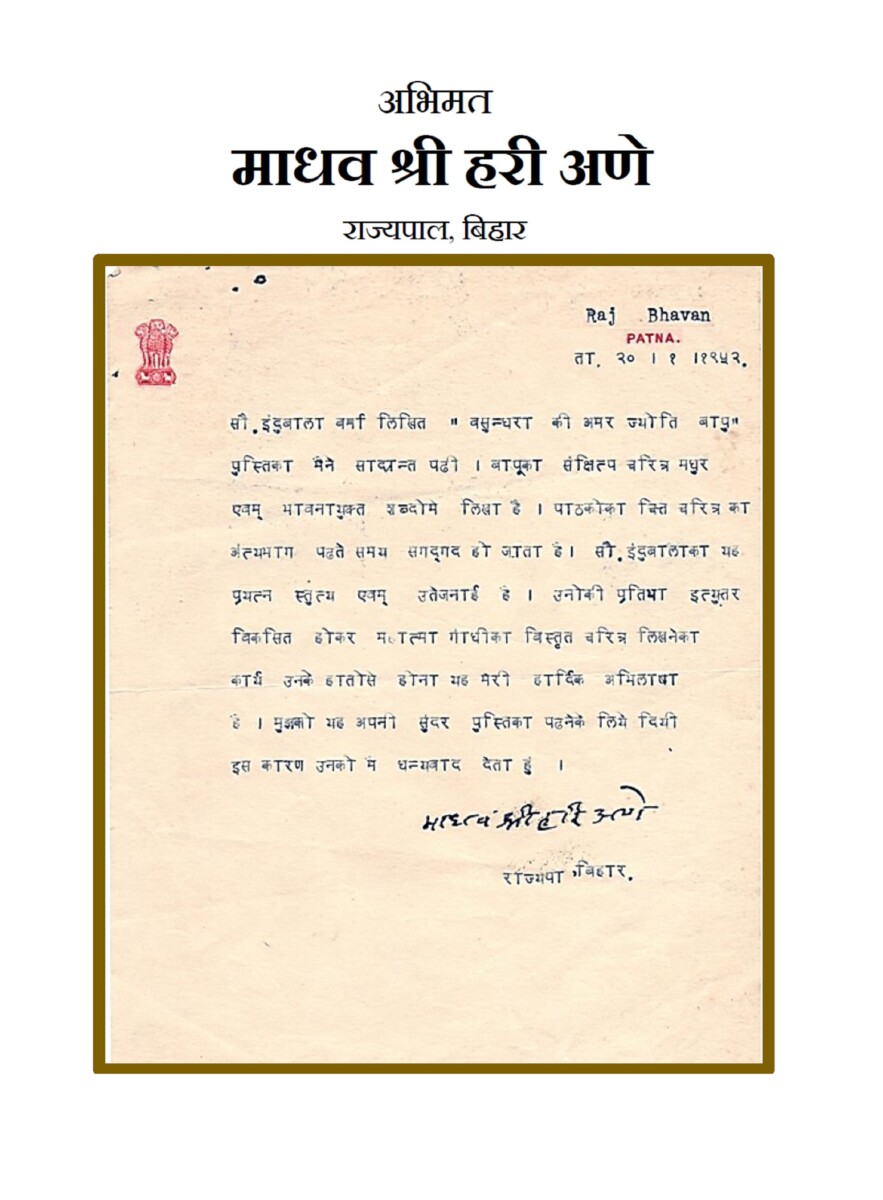 अभिमत
माधव श्री हरी अणे
राज्यपाल, बिहार
Raj Bhavan
PATNA.
ता. २० । १ ।१९५२.
सौ.इंदुबाला वर्मा लिखित " वसुन्धरा की अमर ज्योति बापु"
पुस्तिका मैने साद्यन्त पढी । बापूका संक्षिप्त चरित्र मधुर
एवम् भावनायुक्त शब्दोमे लिखा है । पाठकोका चित्त चरित्र का
अंत्यभाग पढते समय सगद्गद हो जाता है। सौ.इंदुबालाका यह
प्रयत्न स्तुत्य एवम् उतेजनार्ह है । उनोकी प्रतिभा इत्युतर
विकसित होकर महात्मा गांधीका विस्तृत चरित्र लिखनेका
कार्य उनके हातोसे होना यह मेरी हार्दिक अभिलाषा
है । मुझको यह अपनी सुंदर पुस्तिका पढनेके लिये दियी
इस कारण उनको मै धन्यवाद देता हुं ।
माधव श्रीहरि अणे
राज्यपा ,बिहार.